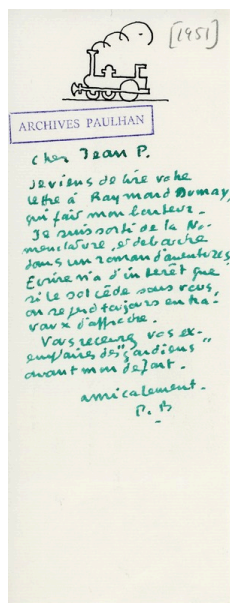 [1951]
ARCHIVES PAULHAN
Cher Jean P.
Je viens de lire votre
lettre à Raymond Dumay,
qui fait mon bonheur.
Je suis sorti de la No-
menclature, et débauche
dans un roman d'aventures,
Ecrire n'a d'intérêt que
si le sol cède sous vous,
on se fend toujours en tra-
vaux d'approche.
Vous recevrez vos ex-
emplaires des "gardiens"
avant mon départ.
amicalement.
P. B